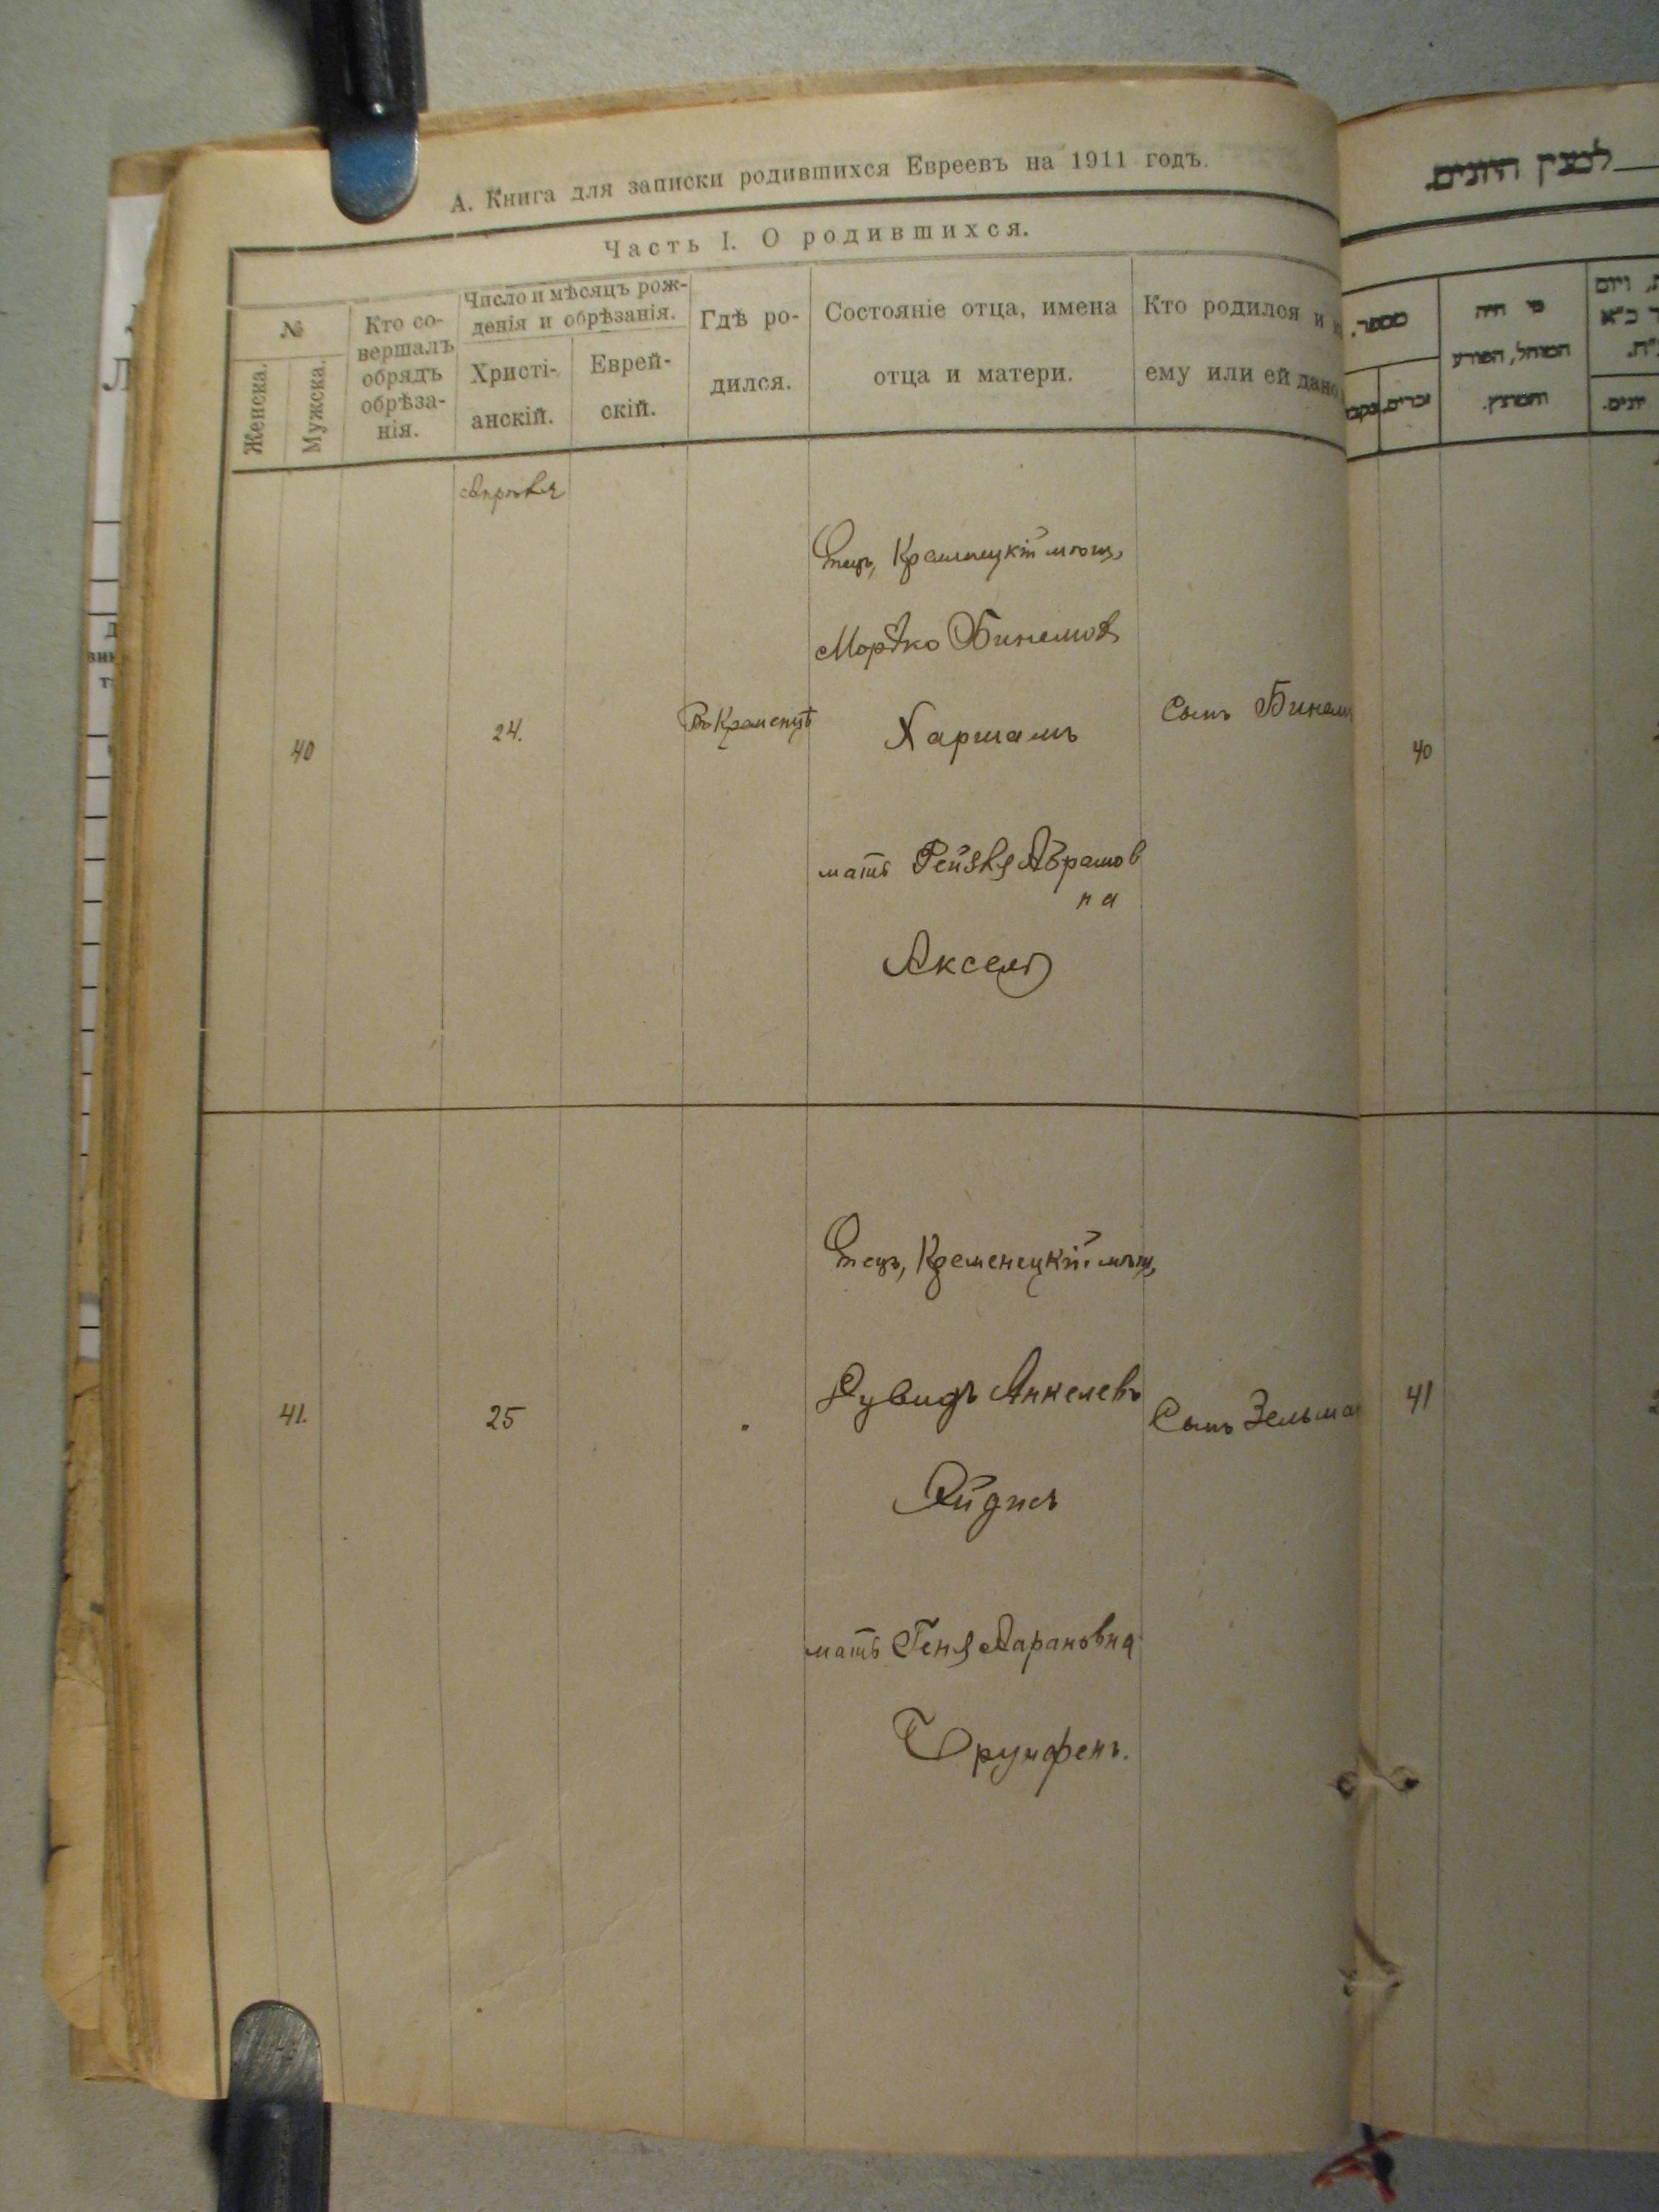 А. Книга для записки родившихся Евреевъ на 1911 годъ.
Часть I. О родившихся.
№
Женска.
Мужска.
Кто со-
вершалъ
обрядъ
обрѣза-
нія.
Число и мѣсяцъ рож-
денія и обрѣзанія.
Христі-
анскій.
Еврей-
скій.
Гдѣ ро-
дился.
Состояніе отца, имена
отца и матери.
Кто родился и
ему или ей дано
Апрѣля
40
24.
Въ Кременцѣ
Отецъ, Кременецкій мѣщ,
Мордко Бинемов
Харшамъ
мать Рейзя Абрамов
на
Аксель
Сынъ Бинем
41.
25
Отецъ, Кременецкій мѣщ,
Дувидъ Анкелевъ
Айдисъ
мать Геня Аарановна
Трумфенъ.
Сынъ Зельма
היונים
מספר.
זכרים.
מי היה
המוהל, הפורע
והמוצץ.
ויום
יונים.
40
41